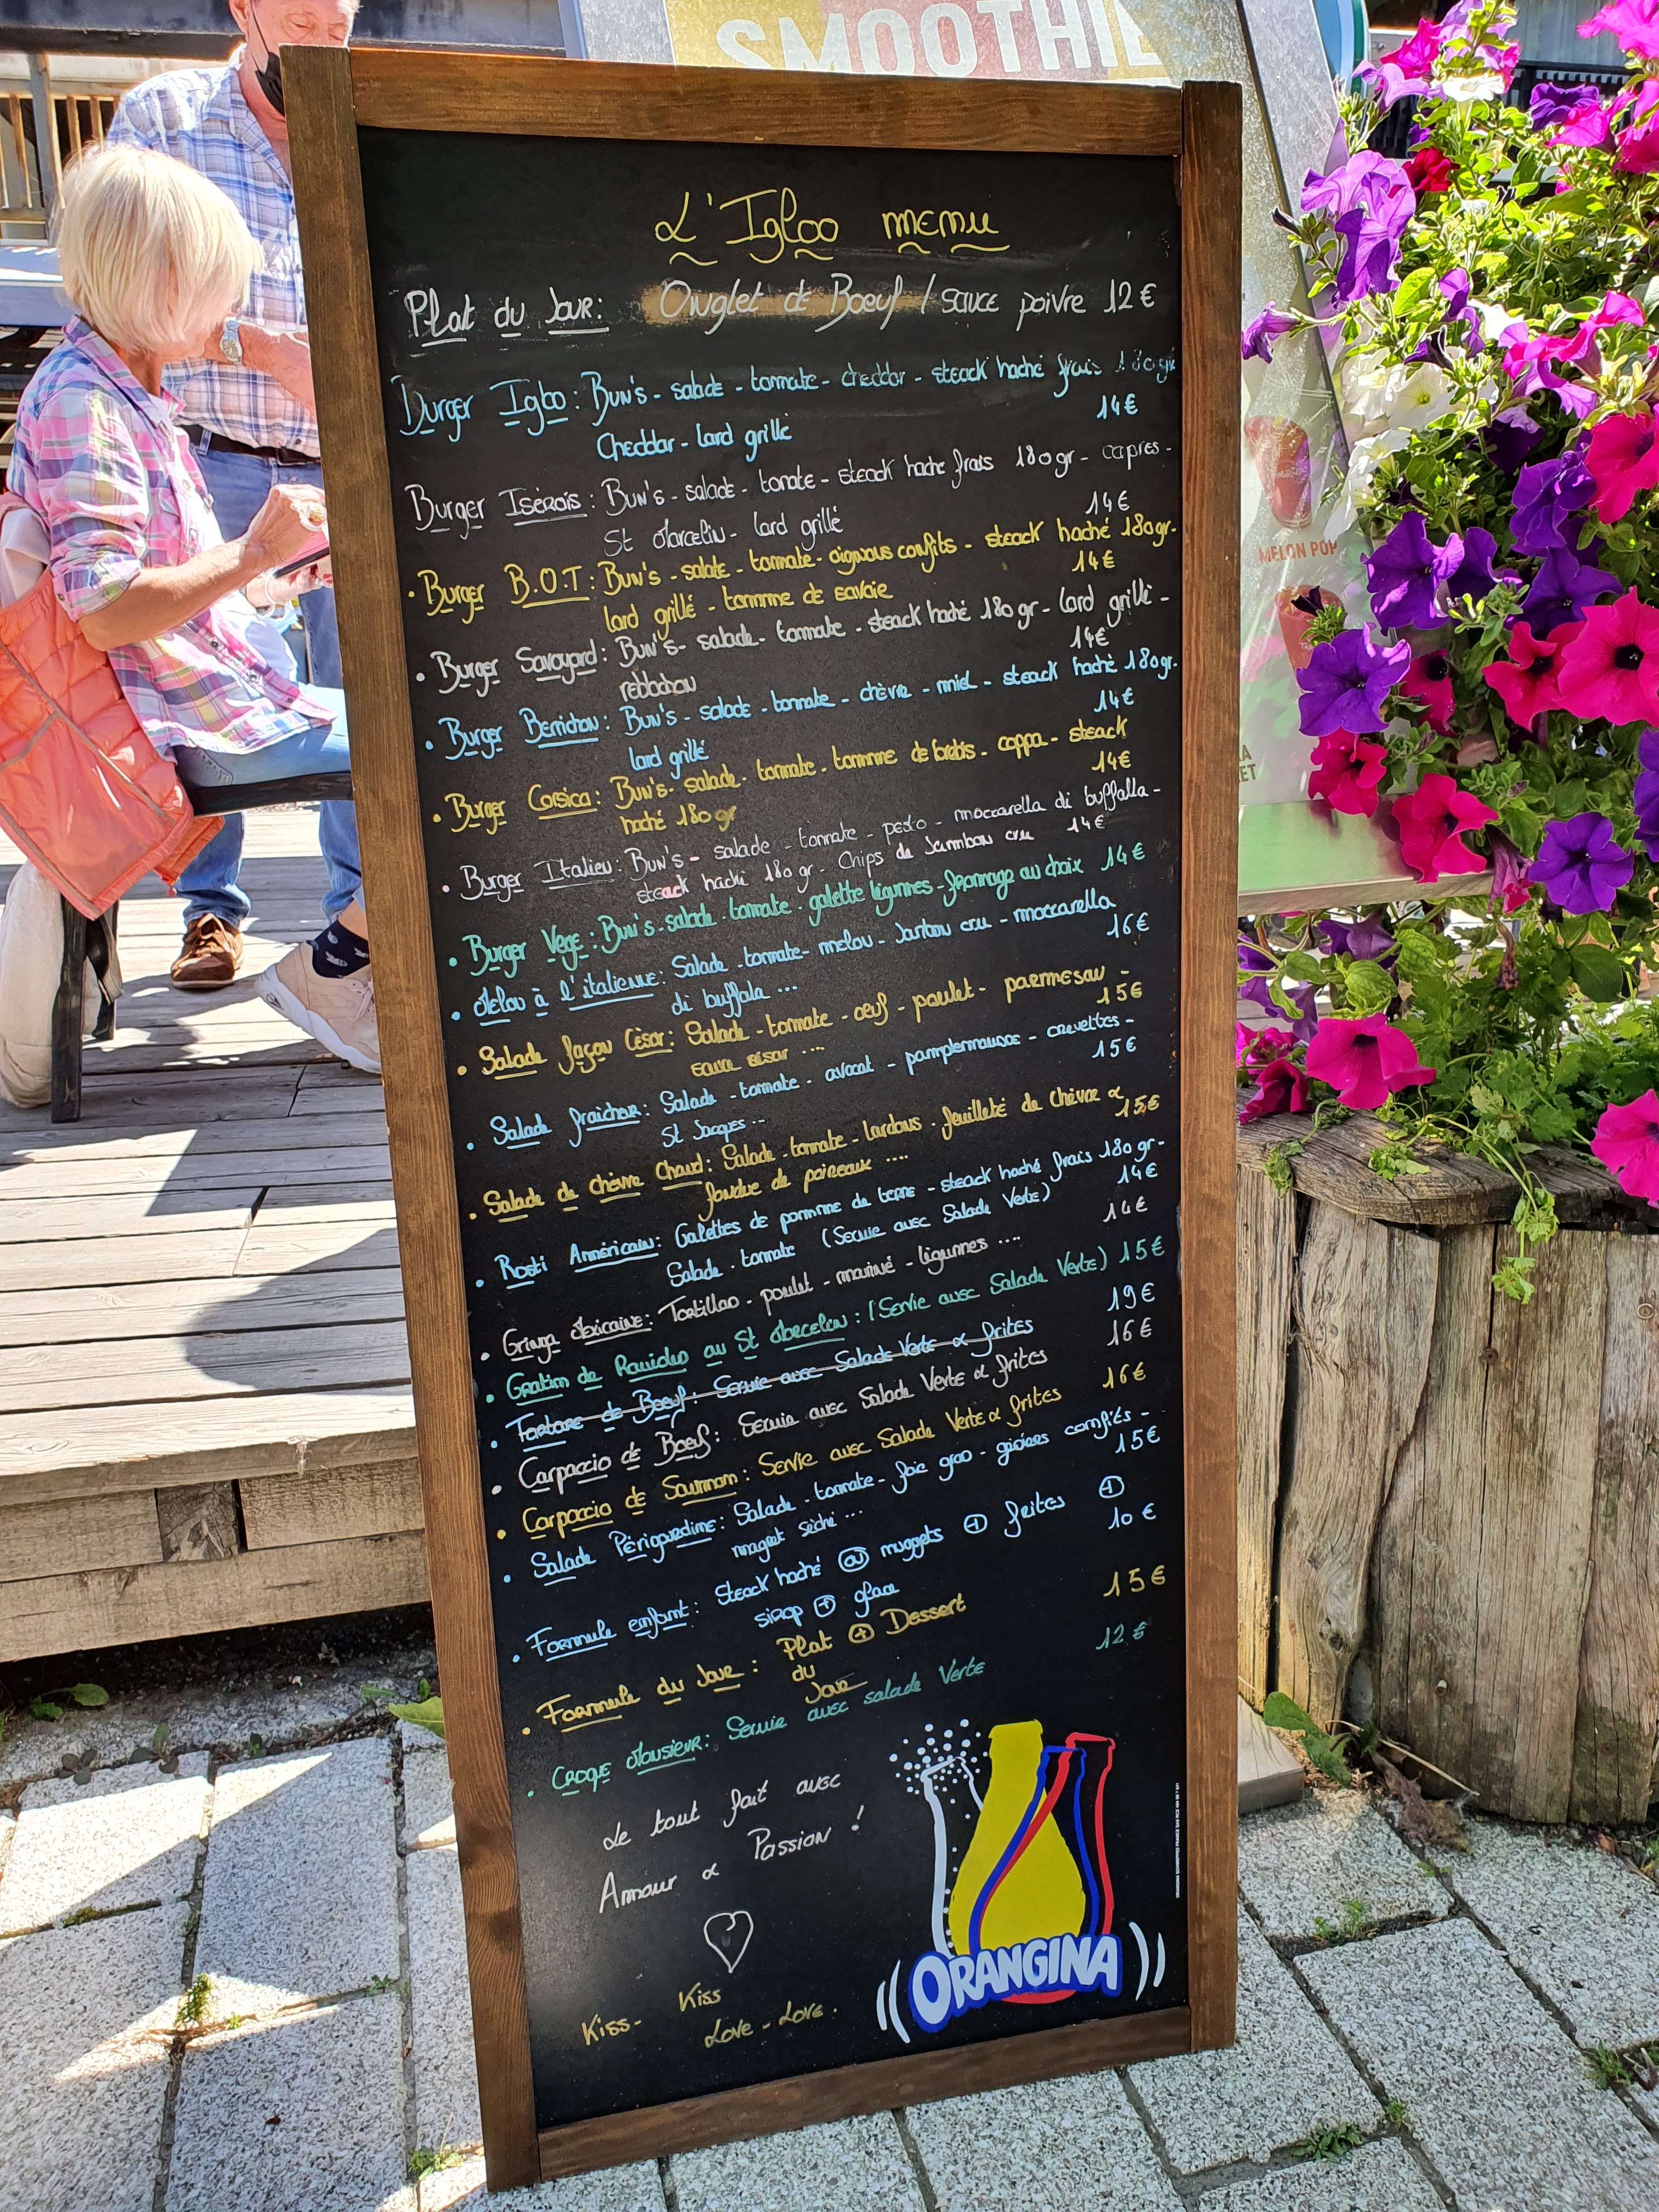 SMOOTHIE
L'Igloo menu
Plat du Jour: Onglet de Boeuf / sauce poivre 12€
Burger Igloo: Bun's - salade - tommate - cheddar - steack haché frais 180gr
14€
Cheddar - lard grillé
Burger Isérois: Bun's - salade - tomate - steack haché frais 180gr - capres -
14€
St Marcelin - lard grillé
• Burger B.O.T: Bun's - salade - tommate - oignons confits - steack haché 180gr.
14€
lard grillé - tommme de savoie
• Burger Savoyard: Bun's - salade - tommate - steack haché 180gr - lard grillé -
14€
reblochon
• Burger Berrichon: Bun's - salade - tommate - chèvre - miel - steack haché 180gr.
14€
lard grillé
• Burger Corsica: Bun's - salade - tommate - tommme de brebis - coppa - steack
14€
haché 180gr
• Burger Italien: Bun's - salade - tommate - pesto - moccarella di buffalla -
steack haché 180gr - Chips de Jambon cru 14€
• Burger Vege: Bun's - salade - tommate - galette légumes - fromage au choix 14€
• Melon à l'italienne: Salade - tommate - melon - Jambon cru - moccarella
16€
di buffala ...
• Salade façon César: Salade - tommate - oeuf - poulet - parmesan -
15€
sauce césar ....
• Salade fraicheur: Salade - tommate - avocat - pamplemousse - crevettes -
15€
St Jacques ...
• Salade de chèvre Chaud: Salade - tommate - lardons - feuilleté de chèvre &
15€
fondue de poireaux ....
• Rosti Américain: Galettes de pomme de terre - steack haché frais 180gr -
14€
Salade - tommate (Servie avec Salade Verte)
• Gringa Mexicaine: Tortillas - poulet - mariné - légumes .... 14€
• Gratin de Ravioles au St Marcelin: (Servie avec Salade Verte) 15€
• Tartare de Boeuf: Servie avec Salade Verte & frites 19€
• Carpaccio de Boeuf: Servie avec Salade Verte & frites 16€
• Carpaccio de Saumon: Servie avec Salade Verte & frites 16€
• Salade Périgourdine: Salade - tommate - foie gras - gésiers confits -
15€
magret séché ...
• Formule enfant: Steack haché ou nuggets + frites +
10€
sirop + glace
• Formule du Jour: Plat + Dessert 15€
du
Jour
• Croque Monsieur: Servie avec salade Verte 12€
Le tout fait avec
Amour & Passion !
Kiss - Kiss
Love - Love.
ORANGINA
MELON POP